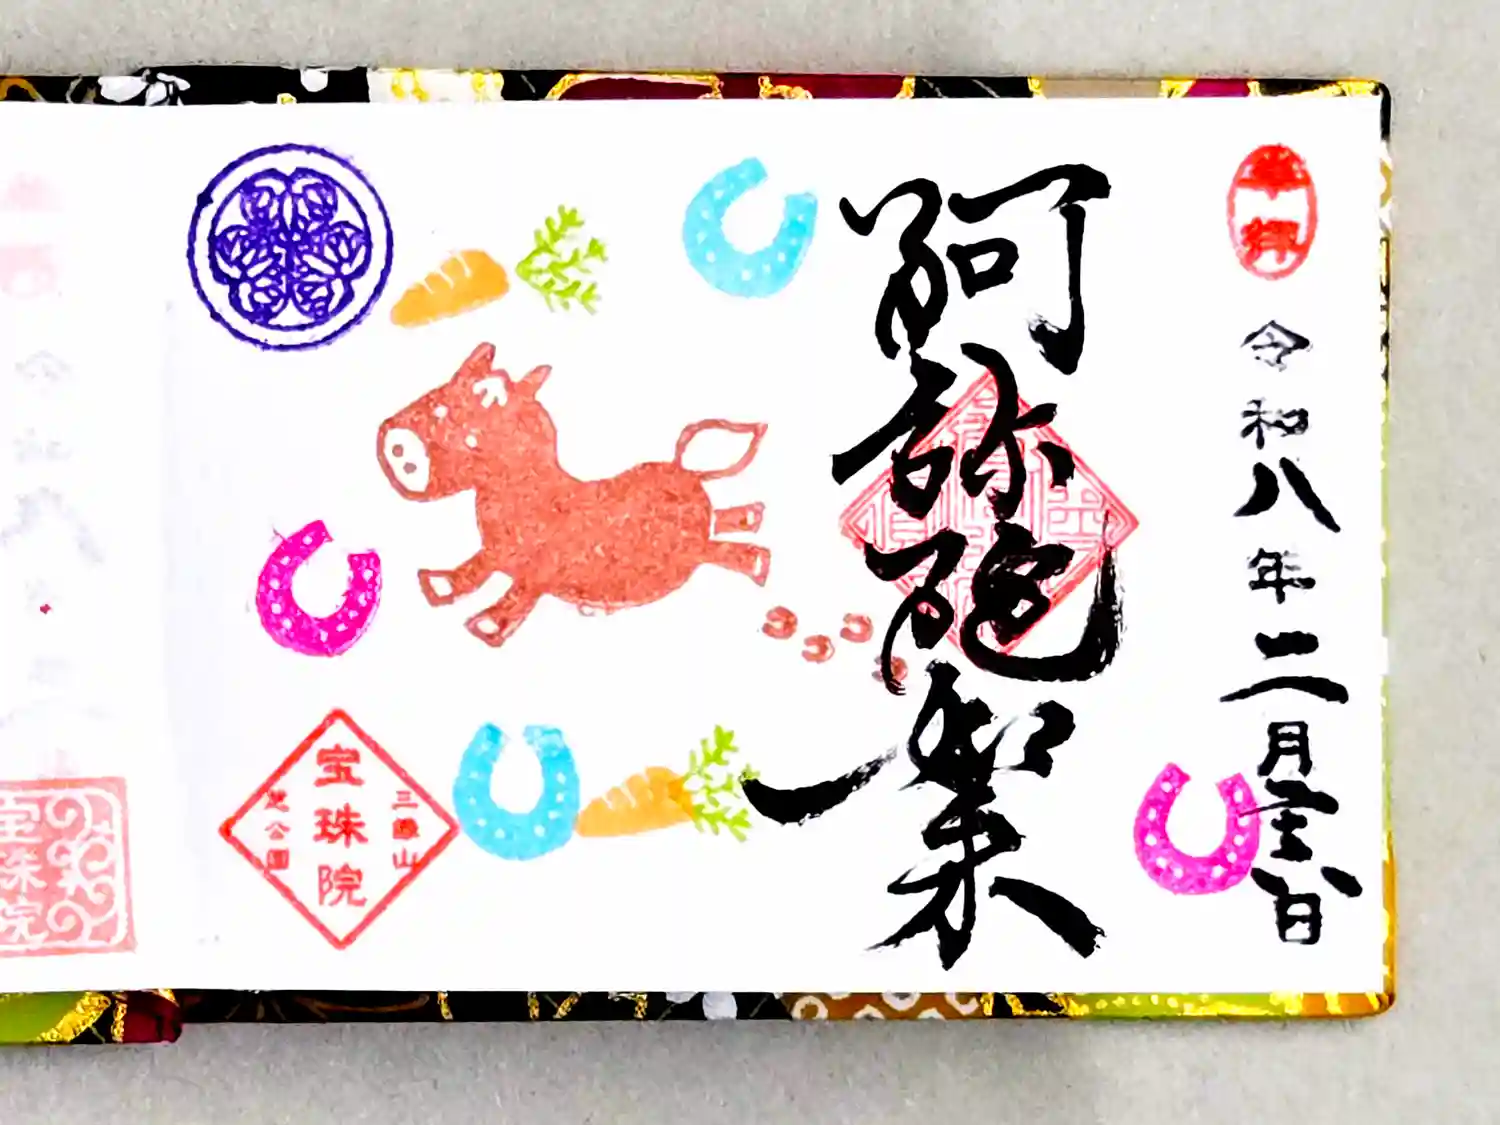 奉拝
令和八年二月
日
阿弥陀如来
三縁山
宝珠院
芝公園